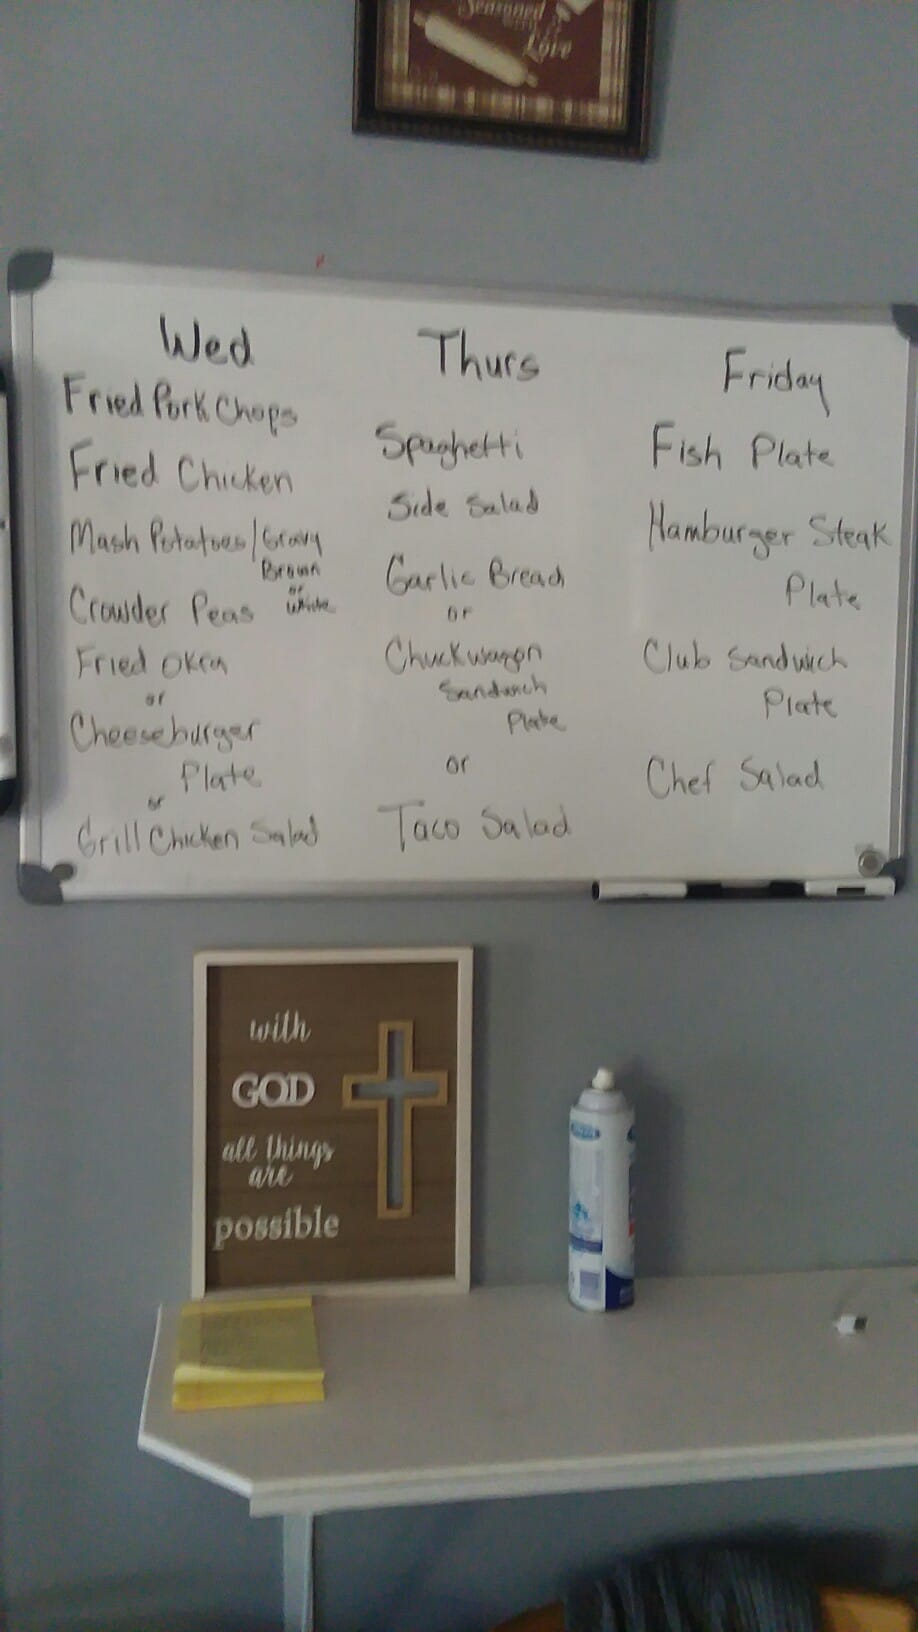 Seasoned
Love
Wed
Fried Pork Chops
Fried Chicken
Mash Potatoes/Gravy
Brown
or
White
Crowder Peas
Fried Okra
or
Cheeseburger
Plate
or
Grill Chicken Salad
Thurs
Spaghetti
Side Salad
Garlic Bread
or
Chuckwagon
Sandwich
Plate
or
Taco Salad
Friday
Fish Plate
Hamburger Steak
Plate
Club Sandwich
Plate
Chef Salad
with
GOD
all things
are
possible